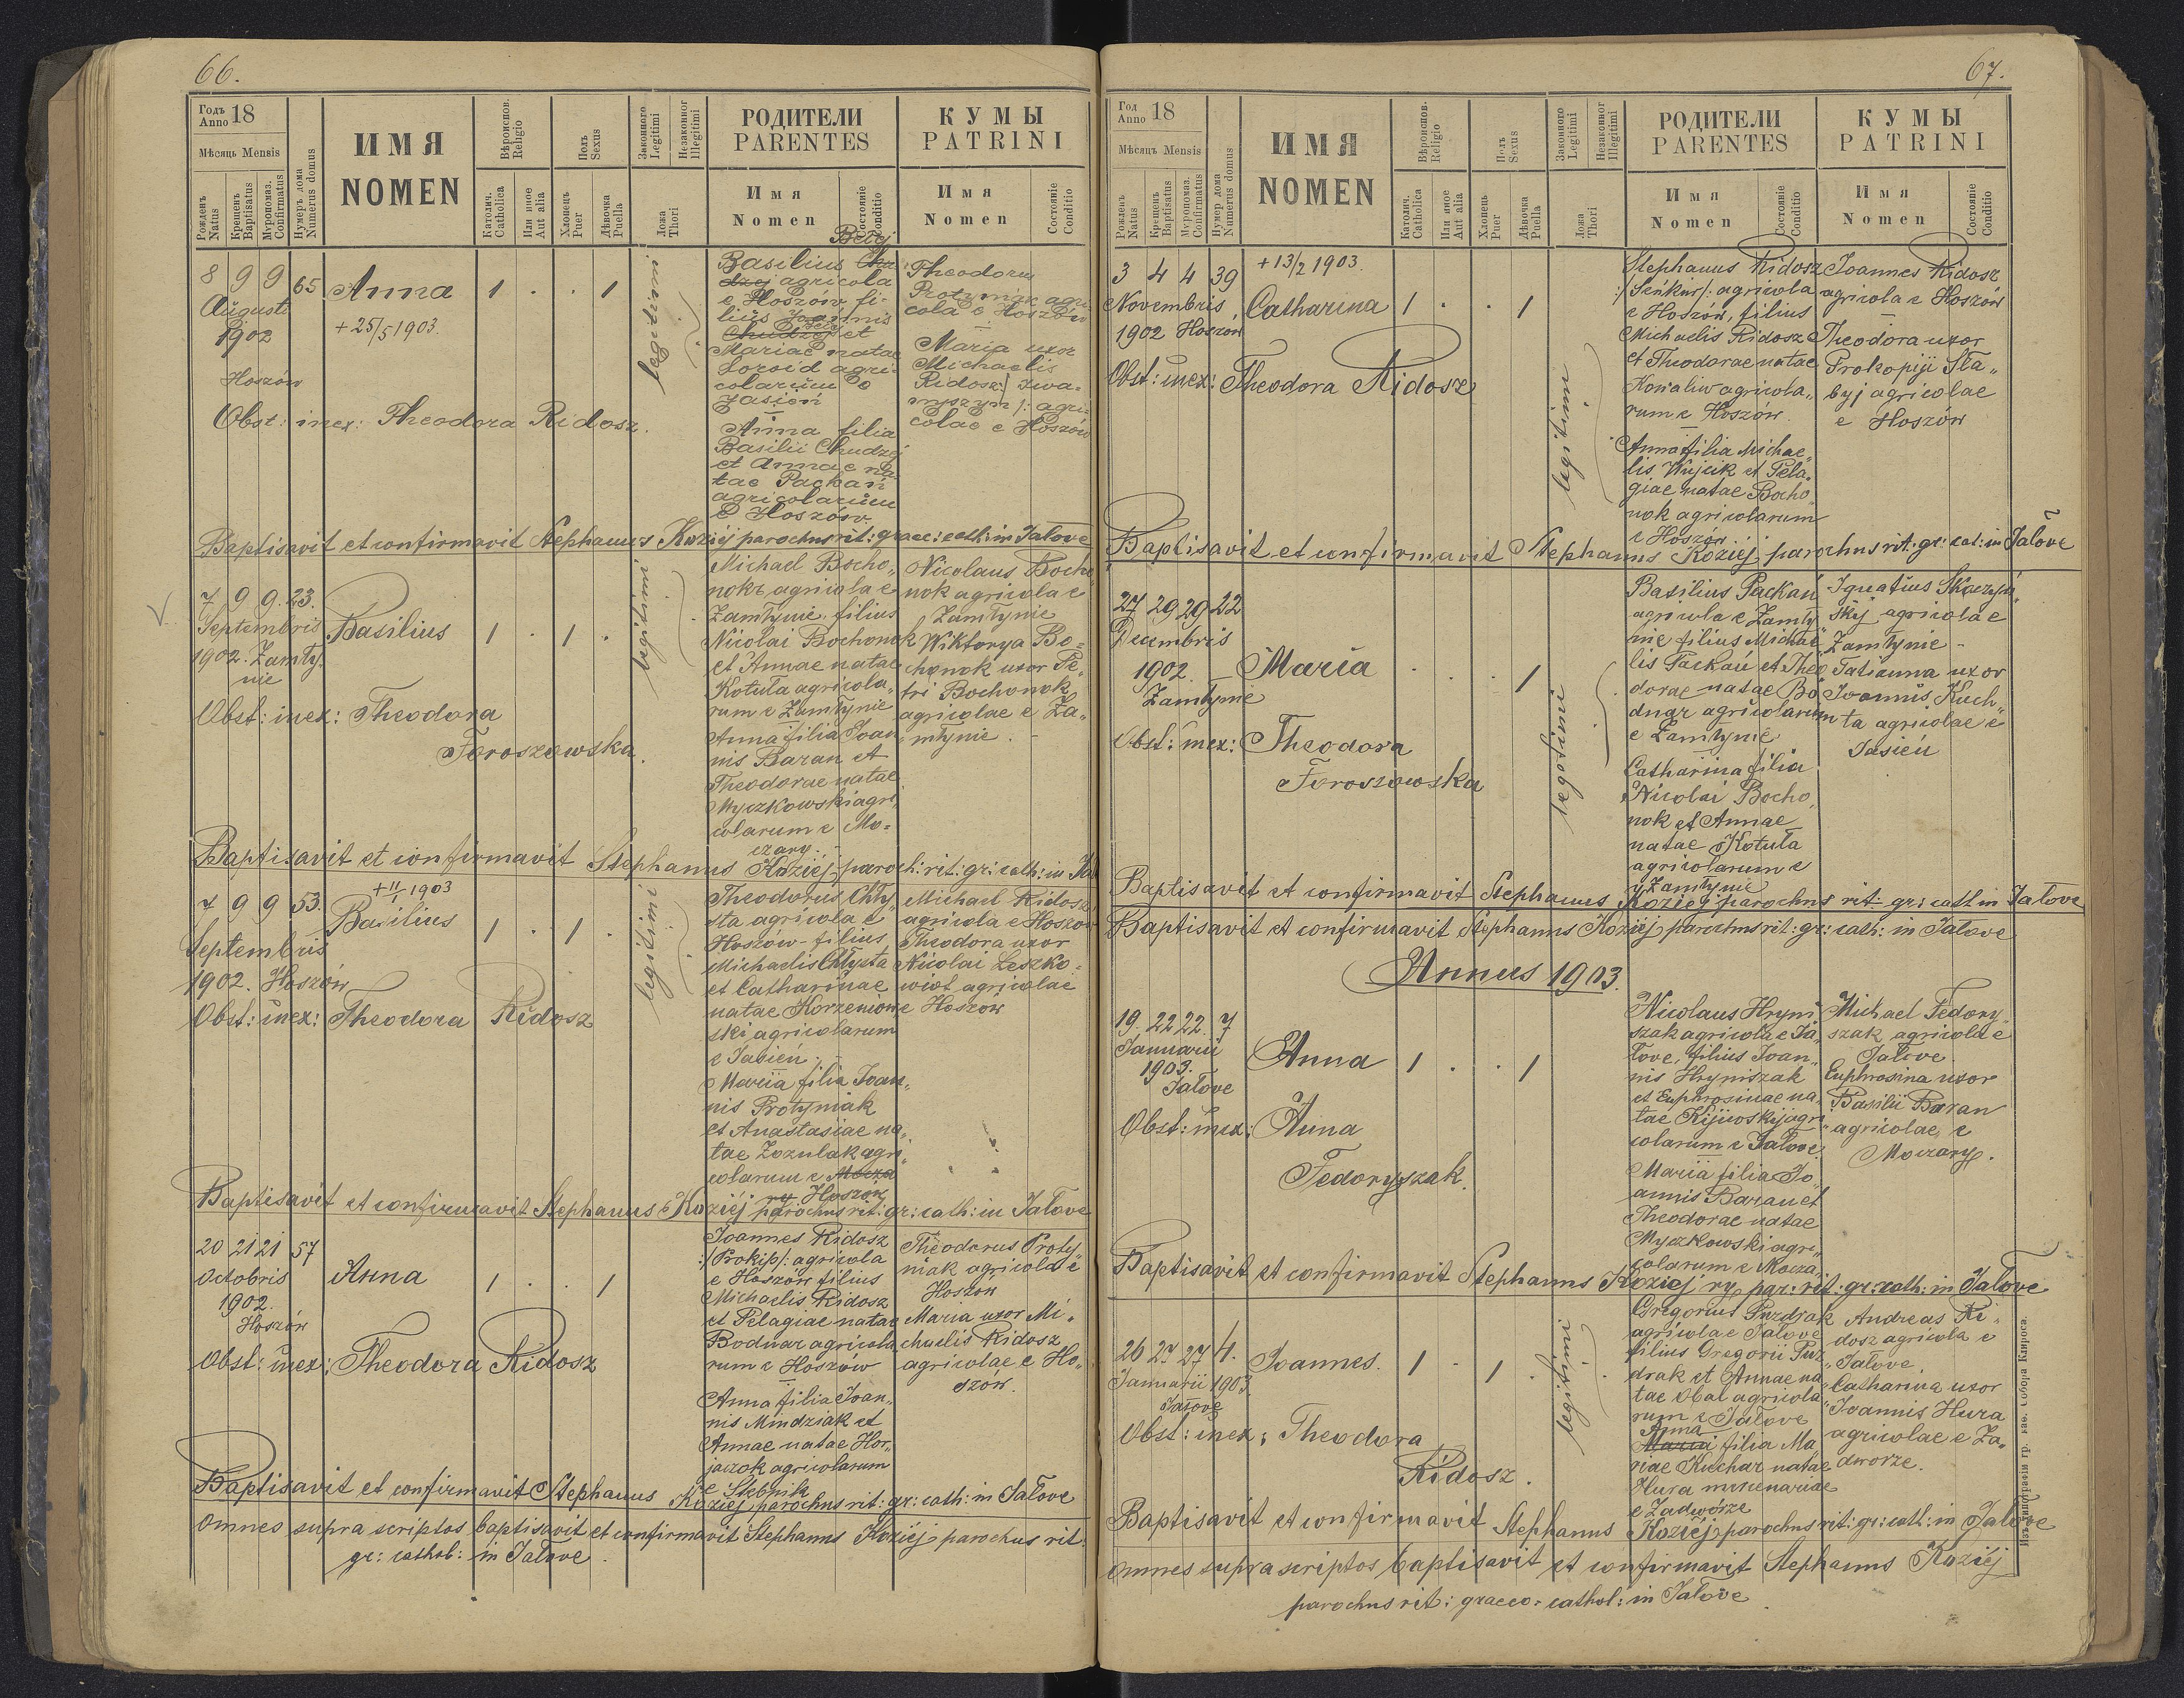 66.
Годъ Anno 18
Мѣсяць Mensis
Рожденъ Natus
Крещенъ Baptisatus
Мѵропомаз. Confirmatus
Нумеръ дома Numerus domus
ИМЯ
NOMEN
Вѣроиспов. Religio
Католич. Catholica
Или иное Aut alia
Полъ Sexus
Хлопець Puer
Дѣвочка Puella
Законного Legitimi
Незаконног Illegitimi
Ложа Thori
РОДИТЕЛИ
PARENTES
Имя Nomen
Состояніе Conditio
КУМЫ
PATRINI
Имя Nomen
Состояніе Conditio
8 9 9 65 Anna 1 . . 1
Augusti
1902
+ 25/5 1903.
Hoszów
Obst: inex: Theodora Ridosz.
legitimi
Betej
Basilius
agricola
e Hoszów fi-
lius Joannis
et
Mariae natae
agri-
colarum e
Jasień
Anna filia
Basilii Chudzej
et Annae na
tae Packań
agricolarum
e Hoszów.
Theodorus
Protyniak agri
cola e Hoszów
Maria uxor
Michaelis
Ridosz
agri-
colae e Hoszów
Baptisavit et confirmavit Stephanus Koziej parochus rit: graec: cath: in Jałove
7 9 9. 23.
Septembris Basilius 1 . 1 .
1902. Zamły
nie
Obst: inex: Theodora
Toroszowska.
legitimi
Michael Bocho„
nok agricola e
Zamłynie, filius
Nicolai Bochonok
et Annae natae
Kotuła agricola„
rum e Zamłynie
Anna filia Joan„
nis Baran et
Theodorae natae
Myczkowski agri„
colarum e Mo-
czary.
Nicolaus Bocho
nok agricola e
Zamłynie
Wiktorya Bo-
chonok uxor Pe-
tri Bochonok
agricolae e Za„
młynie. -
Baptisavit et confirmavit Stephanus Koziej paroch: rit: gr: cath: in Jał
+ 11/1 1903
7 9 9 53. Basilius 1 . 1 .
Septembris
1902. Hoszów
Obst: inex: Theodora Ridosz
legitimi
Theodorus Chły„
sta agricola e
Hoszów - filius
Michaelis Chłysta
et Catharinae
natae Korzeniow
ski agricolarum
e Jasień. -
Mariia filia Joan„
nis Protyniak
et Anastasiae na„
tae Zozulak agri„
colarum e Mocza
ry Hoszów
Michael Ridosz
agricola e Hoszów
Theodora uxor
Nicolai Leszko-
wicz agricolae
e Hoszów
Baptisavit et confirmavit Stephanus Koziej parochus rit: gr: cath: in Jałove
20 21 21 57
Octobris Anna 1 . . 1
1902.
Hoszów
Obst: inex: Theodora Ridosz
Joannes Ridosz
:/Prokip/: agricola
e Hoszów filius
Michaelis Ridosz
et Pelagiae natae
Bodnar agricola„
rum e Hoszów
Anna filia Joan„
nis Mindziak et
Annae natae Hor„
jaczok agricolarum
e Stebnik
Theodorus Proty„
niak agricola e
Hoszów
Maria uxor Mi„
chaelis Ridosz
agricolae e Ho„
szów.
Baptisavit et confirmavit Stephanus Koziej parochus rit: gr: cath: in Jałove
Omnes supra scriptos baptisavit et confirmavit Stephanus Koziej parochus rit:
gr: cathol: in Jałove.
67.
Год Anno 18
Мѣсяцъ Mensis
Рожденъ Natus
Крещенъ Baptisatus
Мѵропомаз. Confirmatus
Нумер дома Numerus domus
ИМЯ
NOMEN
Вѣроиспов. Religio
Католич. Catholica
Или иное Aut alia
Полъ Sexus
Хлопець Puer
Дѣвочка Puella
Законного Legitimi
Незаконног Illegitimi
Ложа Thori
РОДИТЕЛИ
PARENTES
Имя Nomen
Состояніе Conditio
КУМЫ
PATRINI
Имя Nomen
Состояніе Conditio
+ 13/2 1903.
3 4 4 39
Novembris Catharina 1 . . 1
1902 Hoszów
Obst: inex: Theodora Ridosz
legitimi
Stephanus Ridosz
:/Seńków/: agricola
e Hoszów, filius
Michaelis Ridosz
et Theodorae natae
Kowaliw agricola„
rum e Hoszów.
Anna filia Michae„
lis Wujcik et Pela„
giae natae Bocho„
nok agricolarum
e Hoszów.
Joannes Ridosz
agricola e Hoszów
Theodora uxor
Prokopiji Sła„
byj agricolae
e Hoszów
Baptisavit et confirmavit Stephanus Koziej parochus rit: gr: cat: in Jałove
27 29 29 22
Decembris
1902. Maria . . 1
Zamłynie
Obst: inex: Theodora
Toroszowska
legitimi
Basilius Packań
agricola e Zamły„
nie filius Michae„
lis Packań et Theo
dorae natae Bo
dnar agricolarum
e Zamłynie
Catharina filia
Nicolai Bocho„
nok et Annae
natae Kotuła
agricolarum e
Zamłynie
Ignatius Skaczyń„
skij agricola e
Zamłynie -
Tatianna uxor
Joannis Kuch„
ta agricolae e
Jasień
Baptisavit et confirmavit Stephanus Koziej parochus rit: gr: cath in Jałove
Baptisavit et confirmavit Stephanus Koziej parochus rit: gr: cath: in Jałove
Annus 1903.
19. 22 22. 7
Januarii Anna 1 . . 1
1903.
Jałove
Obst: inex: Anna
Fedoryszak.
Nicolaus Hryni„
szak agricola e Ja„
łove, filius Joan„
nis Hryniszak
et Euphrosinae na„
tae Kijiwskij agri„
colarum e Jałove.
Mariia filia Jo„
annis Baran et
Theodorae natae
Myczkowski agri„
colarum e Mocza„
ry
Michael Fedory„
szak agricola e
Jałove.
Euphrosina uxor
Basilii Baran
agricolae e
Moczary.
Baptisavit et confirmavit Stephanus Koziej par: rit: gr: cath: in Jałove
26 27 27 4. Joannes. 1 - 1 .
Januarii 1903
Jałove
Obst: inex: Theodora
Ridosz.
legitimi
Gregorius Puzdjak
agricola e Jałove
filius Gregorii Puz„
drak et Annae na„
tae Obal agricola„
rum e Jałove
Anna
Maria filia Ma„
riae Kuchar natae
Hura mercenariae
e Zadwórze
Andreas Ri„
dosz agricola e
Jałove.
Catharina uxor
Joannis Hura
agricolae e Za„
dworze.
Baptisavit et confirmavit Stephanus Koziej parochus rit: gr: cath: in Jałove
Omnes supra scriptos baptisavit et confirmavit Stephanus Koziej
parochus rit: graeco-cathol: in Jałove.